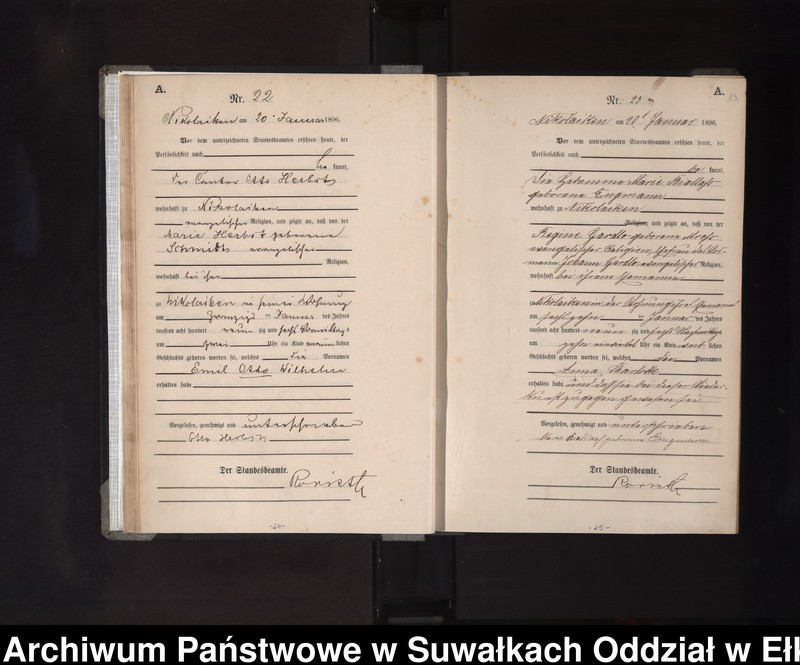 A.
Nr. 22
Nikolaiken am 20. Januar 1896.
Vor dem unterzeichneten Standesbeamten erschien heute, der
Persönlichkeit nach
be kannt,
Der Cantor Otto Herbst
wohnhaft zu Nikolaiken
evangelischer Religion, und zeigte an, daß von der
Marie Herbst geborene
Schmidt evangelischer
Religion,
wohnhaft bei ihm
zu Nikolaiken in seiner Wohnung
am Zwanzigsten Januar des Jahres
tausend acht hundert neun zig und sechs Vormittags
um zwei Uhr ein Kind männlichen
Geschlechts geboren worden sei, welches die Vornamen
Emil Otto Wilhelm
erhalten habe
Vorgelesen, genehmigt und unterschrieben
Otto Herbst
Der Standesbeamte.
-24-
A.
Nr. 23
Nikolaiken am 20. Januar 1896.
Vor dem unterzeichneten Standesbeamten erschien heute, der
Persönlichkeit nach
be kannt,
Die Hebamme Marie Biallass
geborene Engmann
wohnhaft zu Nikolaiken
Religion, und zeigte an, daß von der
Regine geborene
evangelischer Religion, Ehefrau des
Johann evangelischer Religion,
wohnhaft bei ihrem Ehemanne
zu Nikolaiken in der Wohnung ihres Ehemannes
am sechzehnten Januar des Jahres
tausend acht hundert neun zig und sechs Nachmittags
um zehn einviertel Uhr ein Kind weiblichen
Geschlechts geboren worden sei, welches den Vornamen
Anna, Charlotte
erhalten habe und daß sie bei dieser Nieder-
kunft zugegen gewesen sei
Vorgelesen, genehmigt und unterschrieben
Marie Biallass geborene Engmann
Der Standesbeamte.
-25-
Archiwum Państwowe w Suwałkach Oddział w Eł